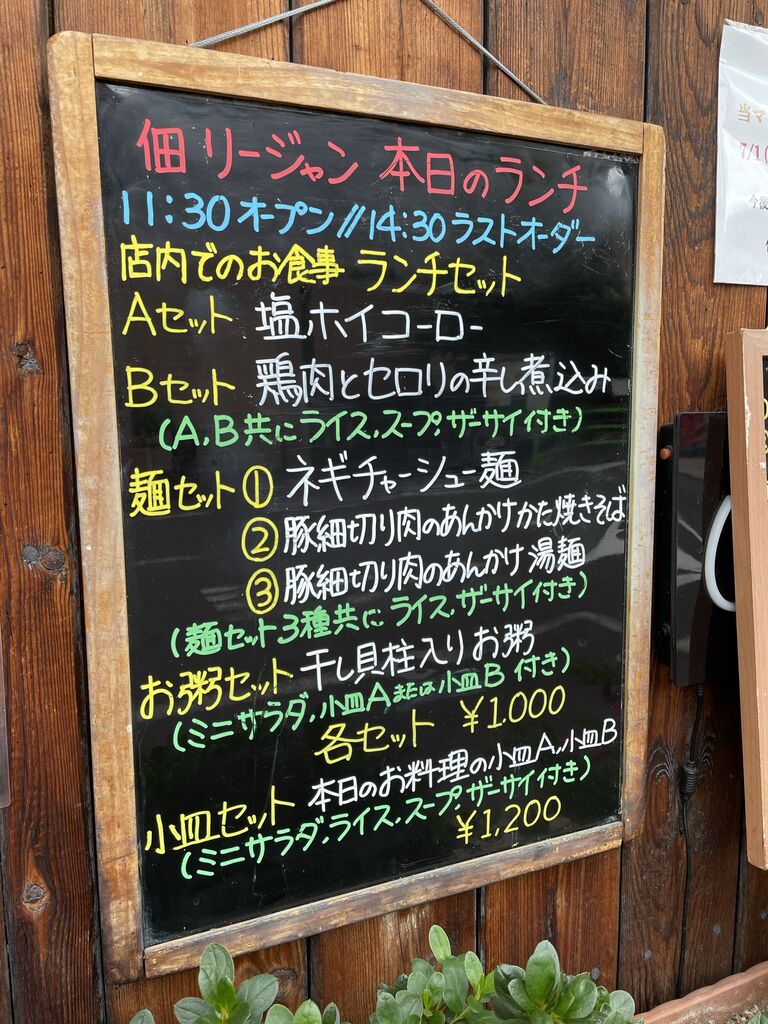 佃 リージャン 本日のランチ
11:30 オープン // 14:30 ラストオーダー
店内でのお食事 ランチセット
Aセット 塩ホイコーロー
Bセット 鶏肉とセロリの辛し煮込み
(A,B共にライス,スープ,ザーサイ付き)
麺セット① ネギチャーシュー麺
②豚細切り肉のあんかけかた焼きそば
③豚細切り肉のあんかけ湯麺
(麺セット3種共に ライス,ザーサイ付き)
お粥セット 干し貝柱入りお粥
(ミニサラダ,小皿Aまたは小皿B 付き)
各セット ¥1.000
小皿セット 本日のお料理の小皿A,小皿B
(ミニサラダ,ライス,スープ,ザーサイ付き)
¥1,200
当マ
7/1(
今後